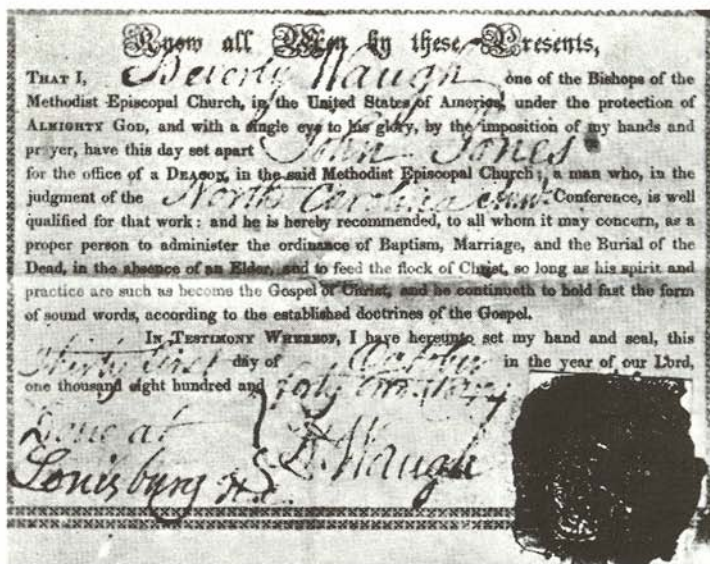 Know all Men by these Presents,
THAT I, Beverly Waugh one of the Bishops of the
Methodist Episcopal Church, in the United States of America, under the protection of
ALMIGHTY GOD, and with a single eye to his glory, by the imposition of my hands and
prayer, have this day set apart John Jones
for the office of a DEACON, in the said Methodist Episcopal Church; a man who, in the
judgment of the North Carolina Conference, is well
qualified for that work: and he is hereby recommended, to all whom it may concern, as a
proper person to administer the ordinance of Baptism, Marriage, and the Burial of the
Dead, in the absence of an Elder, and to feed the flock of Christ, so long as his spirit and
practice are such as become the Gospel of Christ, and he continueth to hold fast the form
of sound words, according to the established doctrines of the Gospel.
IN TESTIMONY WHEREOF, I have hereunto set my hand and seal, this
Thirty first day of October in the year of our Lord,
one thousand eight hundred and
Done at
Louisburg N.C. B. Waugh